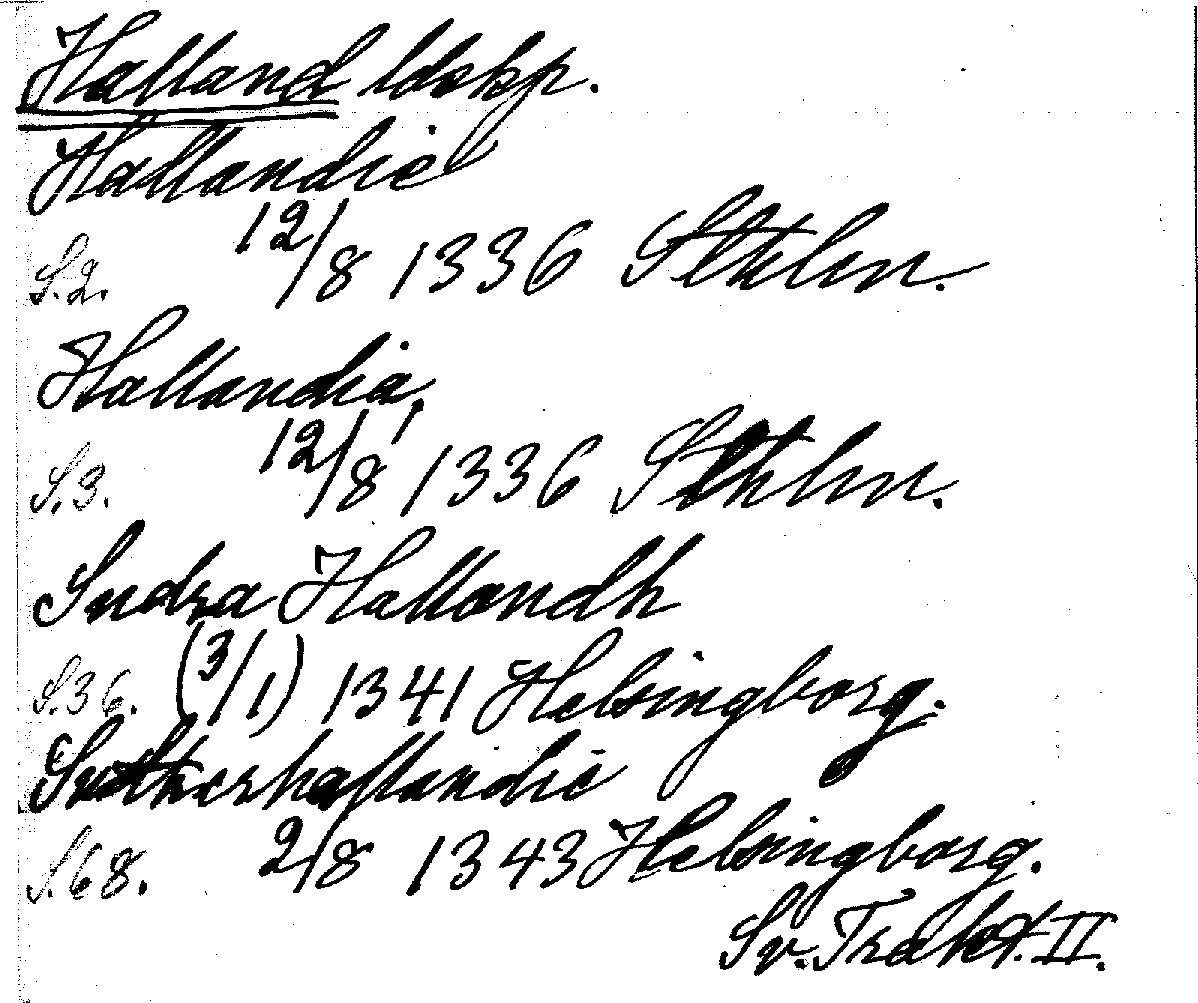 Halland ldskp.
Hallandie
S.2. 12/8 1336 Sthlm.
Hallandia,
S.3. 12/8 1336 Sthlm.
Sudra Hallandh
S.36. (3/1) 1341 Helsingborg.
Sutherhallandie
S.68. 2/8 1343 Helsingborg.
Sv. Trakt. II.